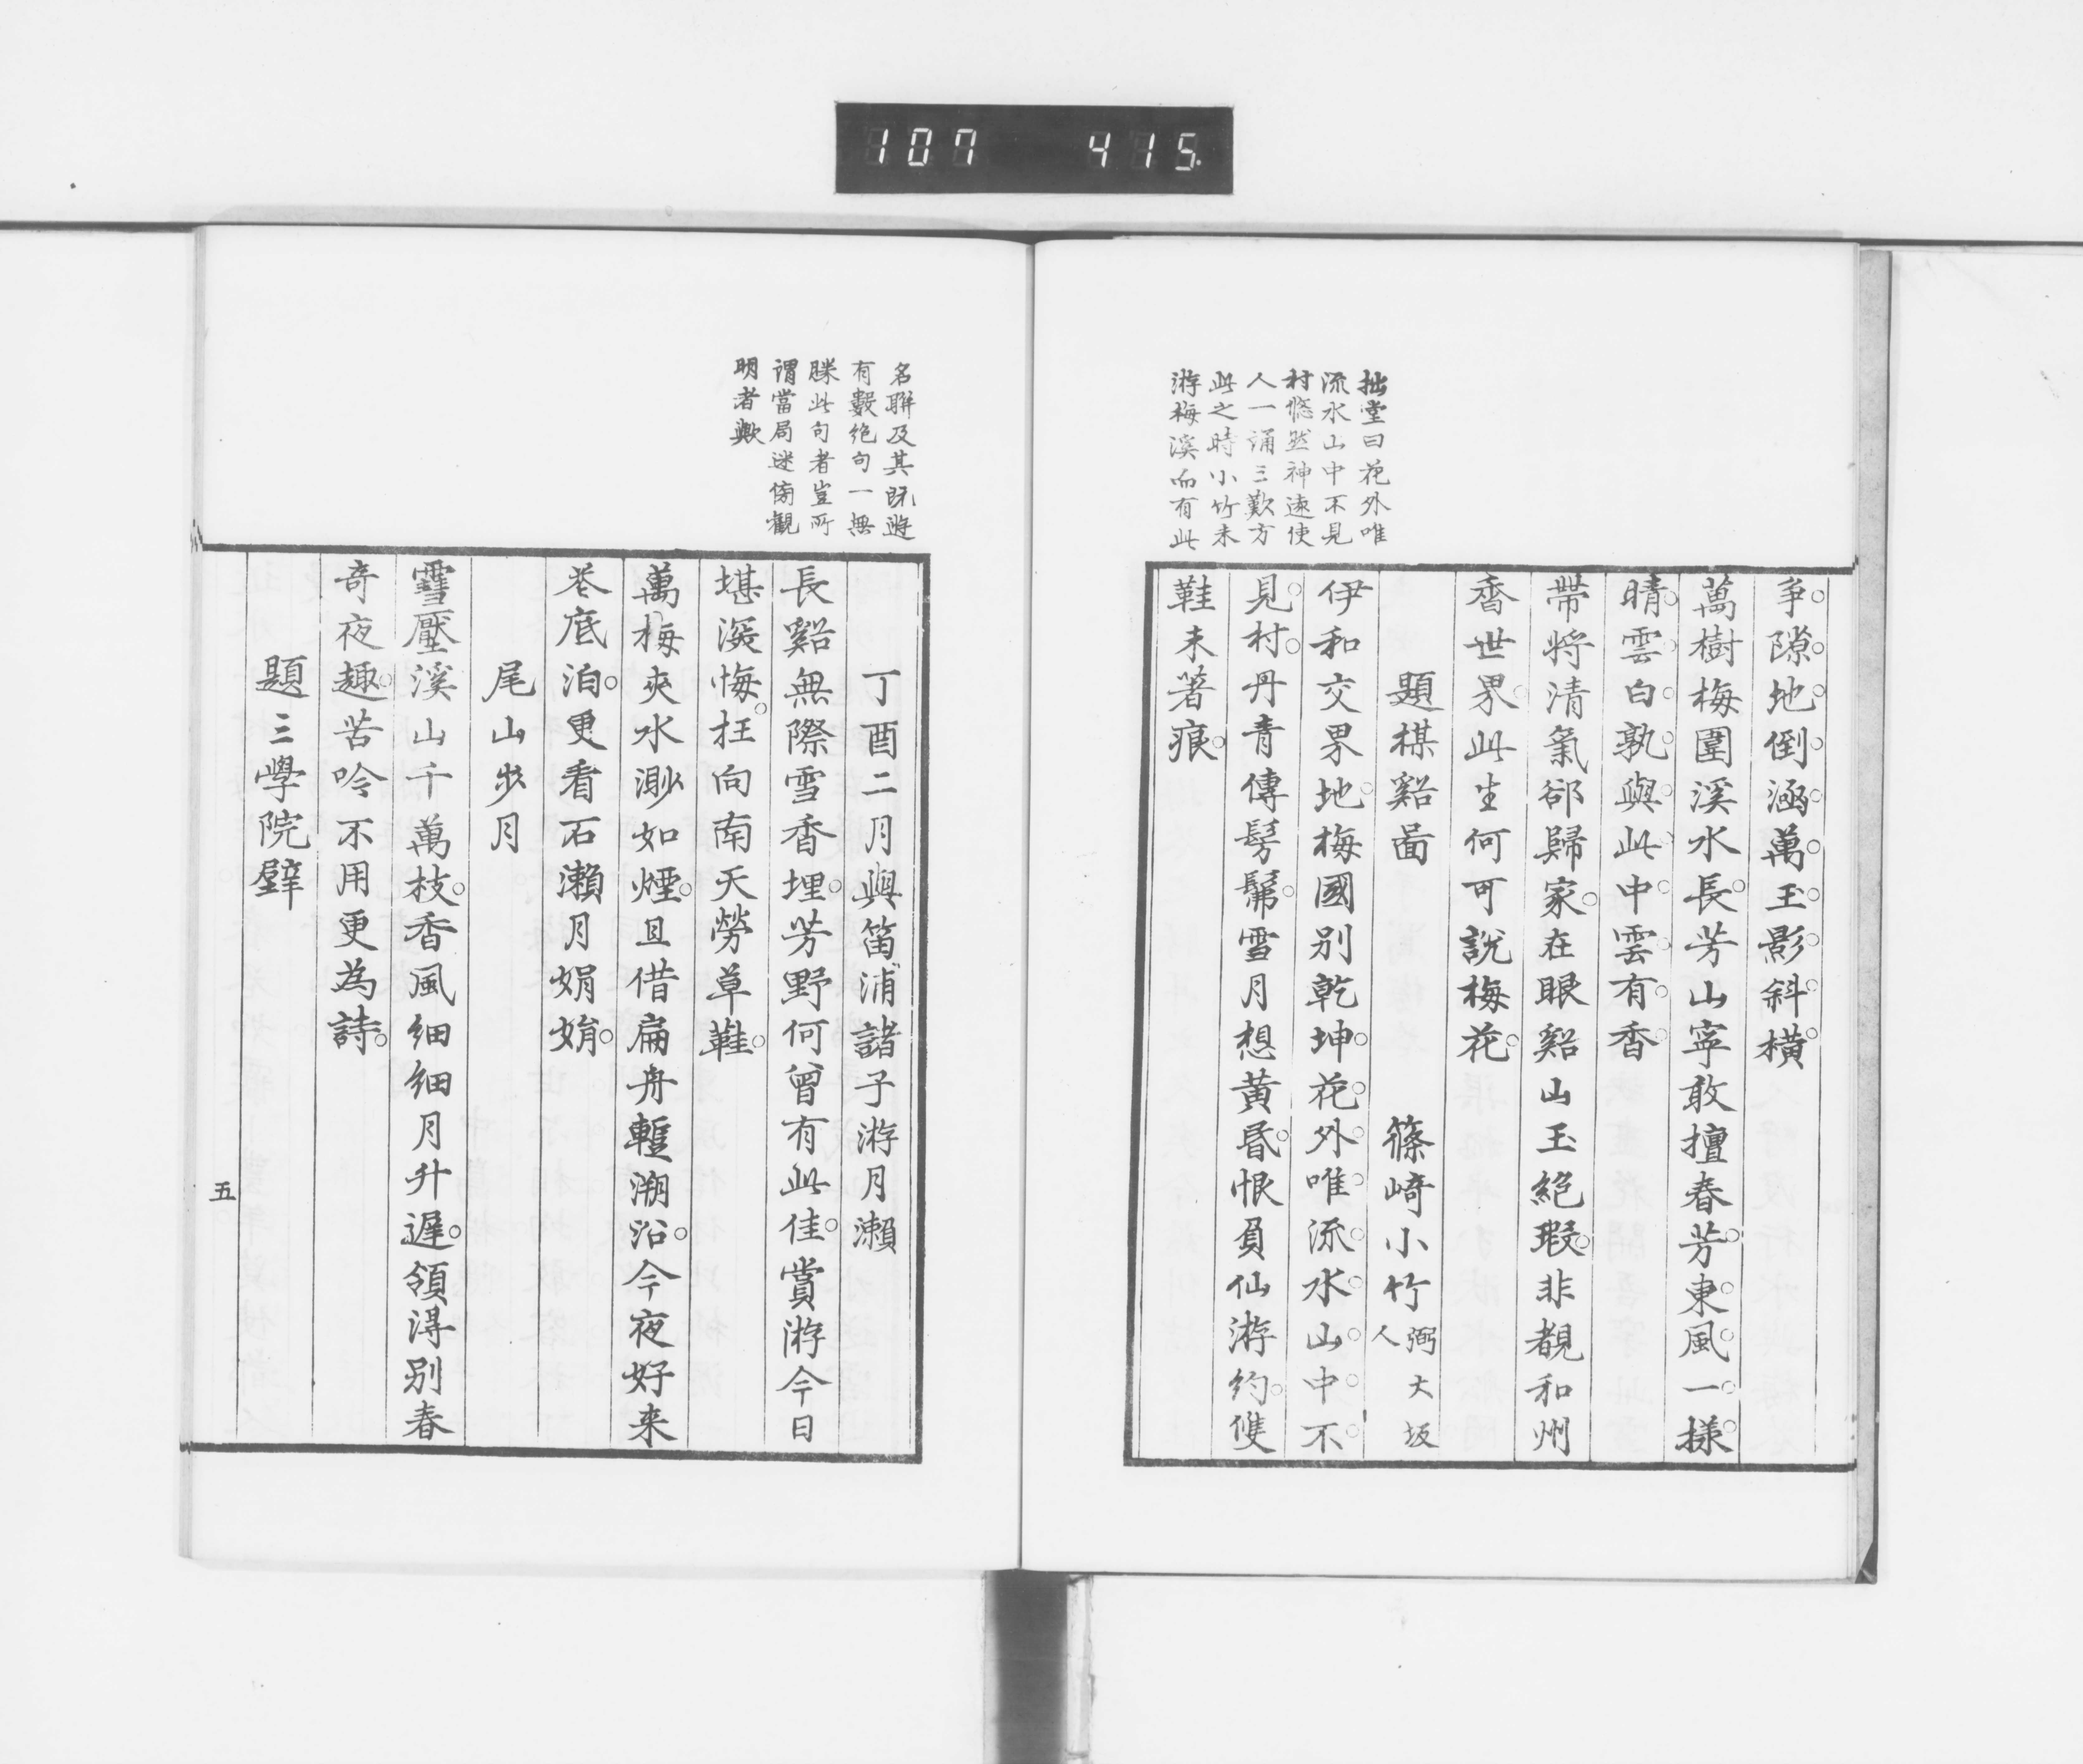 107 415
拙堂曰花外唯
流水山中不見
村悠然神遠使
人一誦三歎方
此之時小竹未
游梅溪而有此
爭隙地倒涵萬玉影斜橫
萬樹梅圍溪水長芳山寧敢擅春芳東風一樣
晴雲白孰與此中雲有香
帶將清氣郤歸家在眼谿山玉絕瑕非覩和州
香世界此生何可說梅花
題楳谿啚 篠崎小竹 弼大坂人
伊和交界地梅國別乾坤花外唯流水山中不
見村丹青傳髣髴雪月想黃昏恨負仙游約雙
鞋未著痕
名聯及其既遊
有數絕句一無
勝此句者豈所
謂當局迷傍觀
明者歟
丁酉二月與笛浦諸子游月瀨
長谿無際雪香埋芳野何曾有此佳賞游今日
堪深悔枉向南天勞草鞋
萬梅夾水渺如煙且借扁舟蹔溯沿今夜好来
花底泊更看石瀨月娟娟
尾山步月
雪壓溪山千萬枝香風細細月升遲領得別春
奇夜趣苦吟不用更為詩
題三學院壁
五